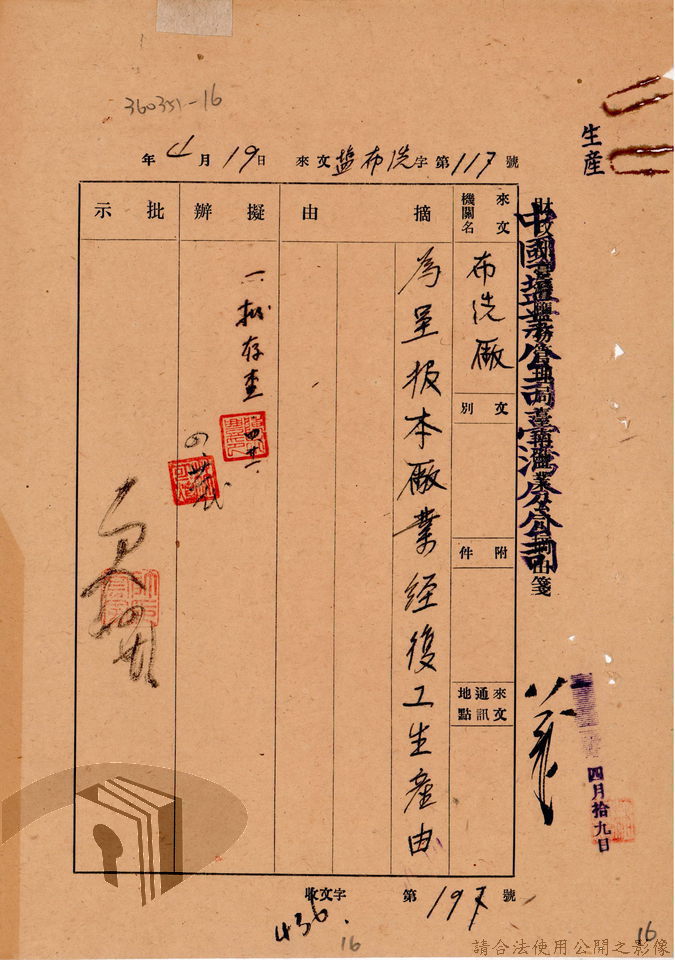 360351-16
生產
年4月19日 來文鹽布洗字第117號
來文機關名
布洗廠
文別
附件
來文通訊地點
摘由
為呈報本廠業經復工生產由
擬辦
一批存查
批示
中國鹽業公司臺灣分公司
四月拾九日
收文 字第197號
436.
16
16
請合法使用公開之影像